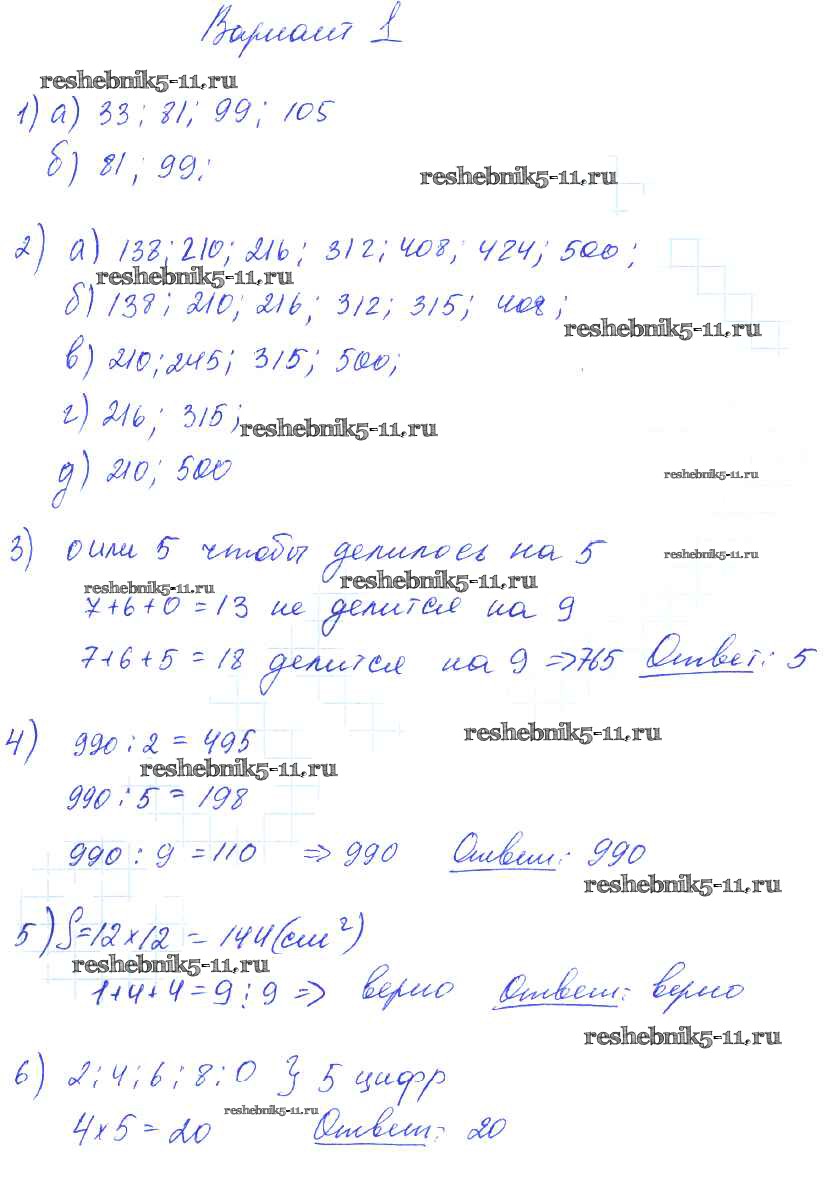 Вариант 1
reshebnik5-11.ru
1) а) 33; 81; 99; 105
б) 81; 99;
reshebnik5-11.ru
2) а) 138; 210; 216; 312; 408; 424; 500;
reshebnik5-11.ru
б) 138; 210; 216; 312; 315; 408;
reshebnik5-11.ru
в) 210; 245; 315; 500;
г) 216; 315;
reshebnik5-11.ru
д) 210; 500
reshebnik5-11.ru
3) 0 или 5 чтобы делилось на 5
reshebnik5-11.ru
reshebnik5-11.ru
reshebnik5-11.ru
7+6+0=13 не делится на 9
7+6+5=18 делится на 9 => 765 Ответ: 5
4) 990:2=495
reshebnik5-11.ru
reshebnik5-11.ru
990:5=198
990:9=110 => 990 Ответ: 990
reshebnik5-11.ru
5) S=12×12=144(см²)
reshebnik5-11.ru
1+4+4=9:9 => верно Ответ: верно
reshebnik5-11.ru
6) 2;4;6;8;0 } 5 цифр
reshebnik5-11.ru
4×5=20 Ответ: 20